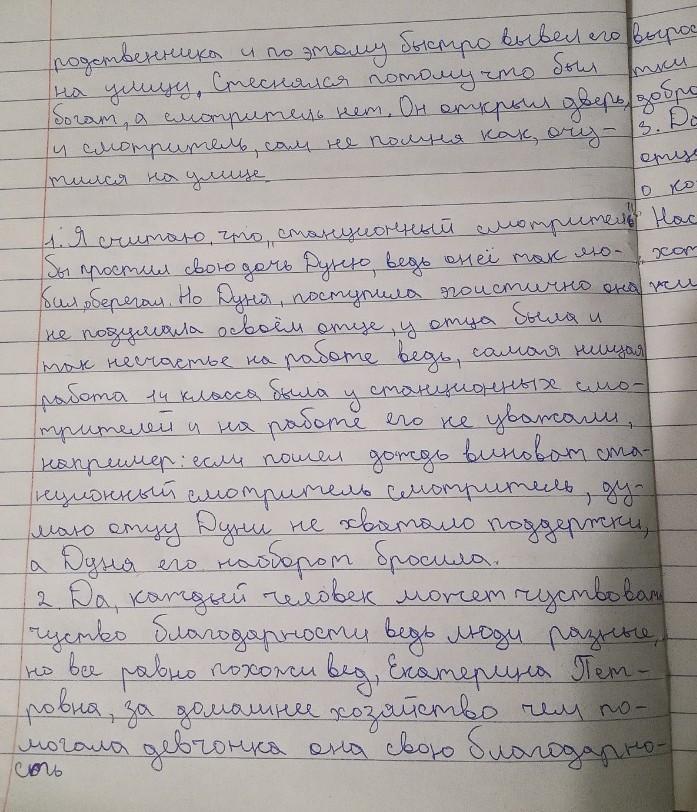 родственника и по этому быстро вывел его
на улицу. Стеснялся потому что был
богат, а смотритель нет. Он открыл дверь,
и смотритель, сам не помня как, очу-
тился на улице.
1. Я считаю, что "станционный смотритель"
бы простил свою дочь Дуню, ведь он её так лю-
бил, оберегал. Но Дуня, поступила эгоистично она
не подумала о своём отце, у отца была и
так несчастье на работе ведь, самая нищая
работа 14 класса была у станционных смо-
трителей и на работе его не уважали,
например: если пошел дождь виноват ста-
нционный смотритель смотритель, ду-
маю отцу Дуни не хватало поддержки,
а Дуня его наоборот бросила.
2. Да, каждый человек может чуствовать
чуство благодарности ведь люди разные,
но все равно похожи вед, Екатерина Пет-
ровна, за домашнее хозяйство чем по-
могала девчонка она свою благодарно-
сть
вырос
тки
добро
3. Да
отце
о ко
Нас
хот
жи